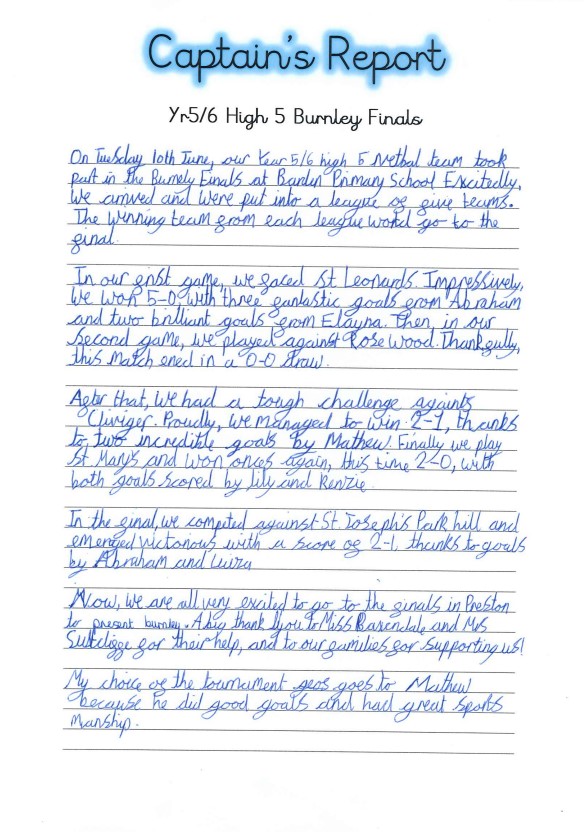 Captain's Report
Yr5/6 High 5 Burnley Finals
On Tuesday 10th June, our Year 5/6 high 5 Netbal team took
part in the Burnely Finals at Barden Primary School Excitedly,
we arrived and were put into a league of five teams.
The winning team from each league would go to the
final.
In our first game, we faced St Leonards. Impressively,
we won 5-0, with three fantastic goals from Abraham
and two brilliant goals from Elayna. Then, in our
second game, we played against Rose Wood. Thankfully,
this match ened in a 0-0 draw.
After that, we had a tough challenge againts
Cliviger. Proudly, we managed to win 2-1, thanks
to, two incredible goals by Mathew. Finally we play
St Marys and won onces again, this time 2-0, with
both goals scored by Lily and Renzie.
In the final, we competed against St. Joseph's Park hill and
emerged victorious with a score of 2-1, thanks to goals
by Abraham and Luiza
Now, we are all very excited to go to the finals in Preston
to present burnley. A big thank you to Miss Baxendale, and Mrs
Sutcliffe for their help, and to our families for supporting us!
My choice of the tournament geos goes to Mathew
because he did good goals and had great sports
manship.